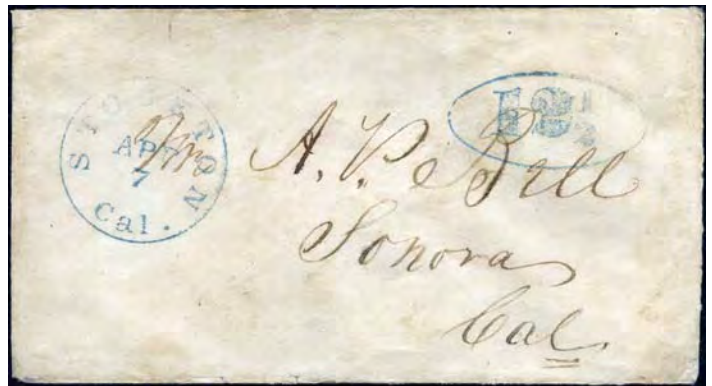 STOCKTON
APR
7
Cal.
12½
A. P. Bell
Sonora
Cal